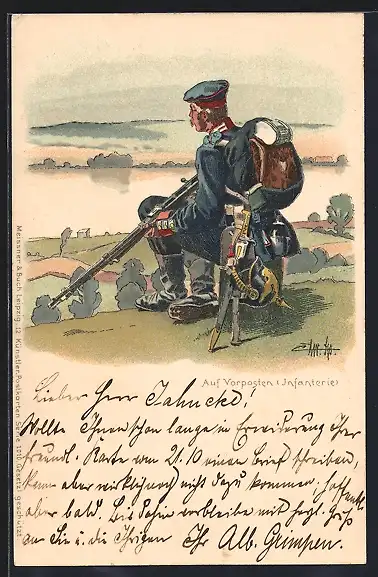 Auf Vorposten (Infanterie)
Meissner & Buch, Leipzig, 12 Künstler-Postkarten Serie 1016, Gesetzl. geschützt.
Lieber Herr Jahncke!
Wollte Ihnen schon lange in Erwiderung Ihrer
freundl. Karte vom 21.10 einen Brief schreiben,
kam aber wirklich noch nicht dazu kommen. Hoffentl.
aber bald. Bis dahin verbleibe mit herzl. Gruß
an Sie u. die Ihrigen Ihr Alb. Grimpen.